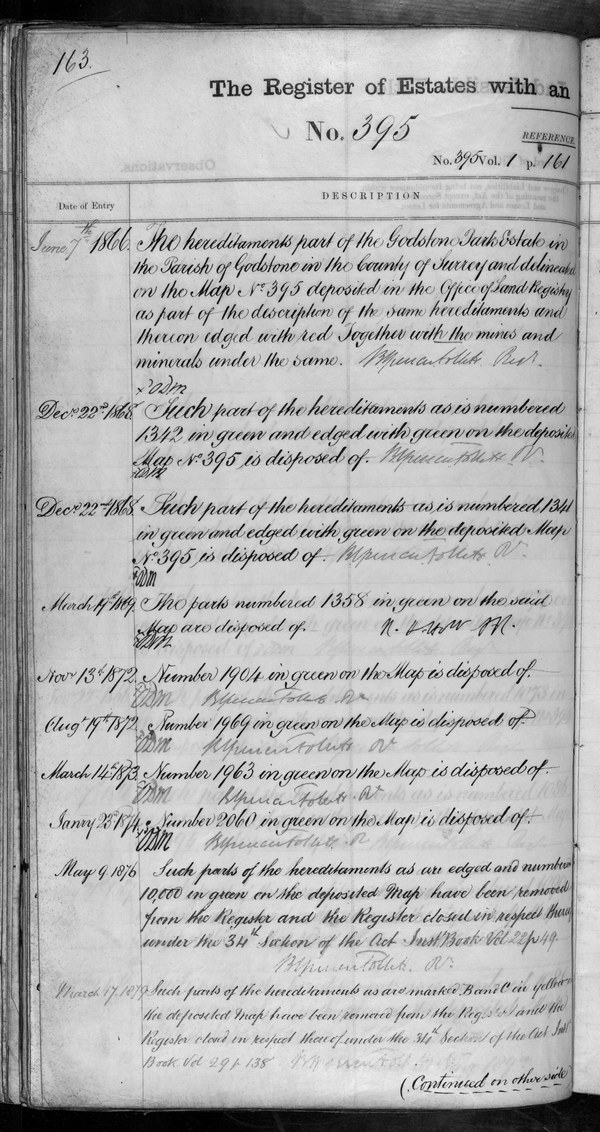 163.
The Register of Estates with an
No. 395
REFERENCE
No. 395 Vol. 1 p. 161
Date of Entry
DESCRIPTION
June 7th 1866. The hereditaments part of the Godstone Park Estate in
the Parish of Godstone in the County of Surrey and delineated
on the Map No. 395 deposited in the Office of Land Registry
as part of the description of the same hereditaments and
thereon edged with red Together with the mines and
minerals under the same. Brent Spencer Follett Regr.
ODM
Decr. 22nd 1868. Such part of the hereditaments as is numbered
1342 in green and edged with green on the deposited
Map No. 395, is disposed of. Brent Spencer Follett R.
ODM
Decr. 22nd 1868. Such part of the hereditaments as is numbered 1341
in green and edged with green on the deposited Map
No. 395, is disposed of
ODM
March 19th 1869. The parts numbered 1358 in green on the said
Map are disposed of.
ODM
Novr 13th 1872. Number 1904 in green on the Map is disposed of.
ODM
Augt 19th 1872. Number 1969 in green on the Map is disposed of.
ODM
March 14th 1873. Number 1963 in green on the Map is disposed of.
ODM
Janry 23rd 1874. Number 2060 in green on the Map is disposed of.
ODM
May 9 1876 Such parts of the hereditaments as are edged and number
10,000 in green on the deposited Map have been removed
from the Register and the Register closed in respect there
under the 34th Section of the Act Inst Book Vol 22 p 49
March 17. 1879 Such parts of the hereditaments as are marked B and C in yellow on
the deposited Map have been removed from the Register and the
Register closed in respect thereof under the 34th Section of the Act Inst
Book Vol 29 p 138
(Continued on other side